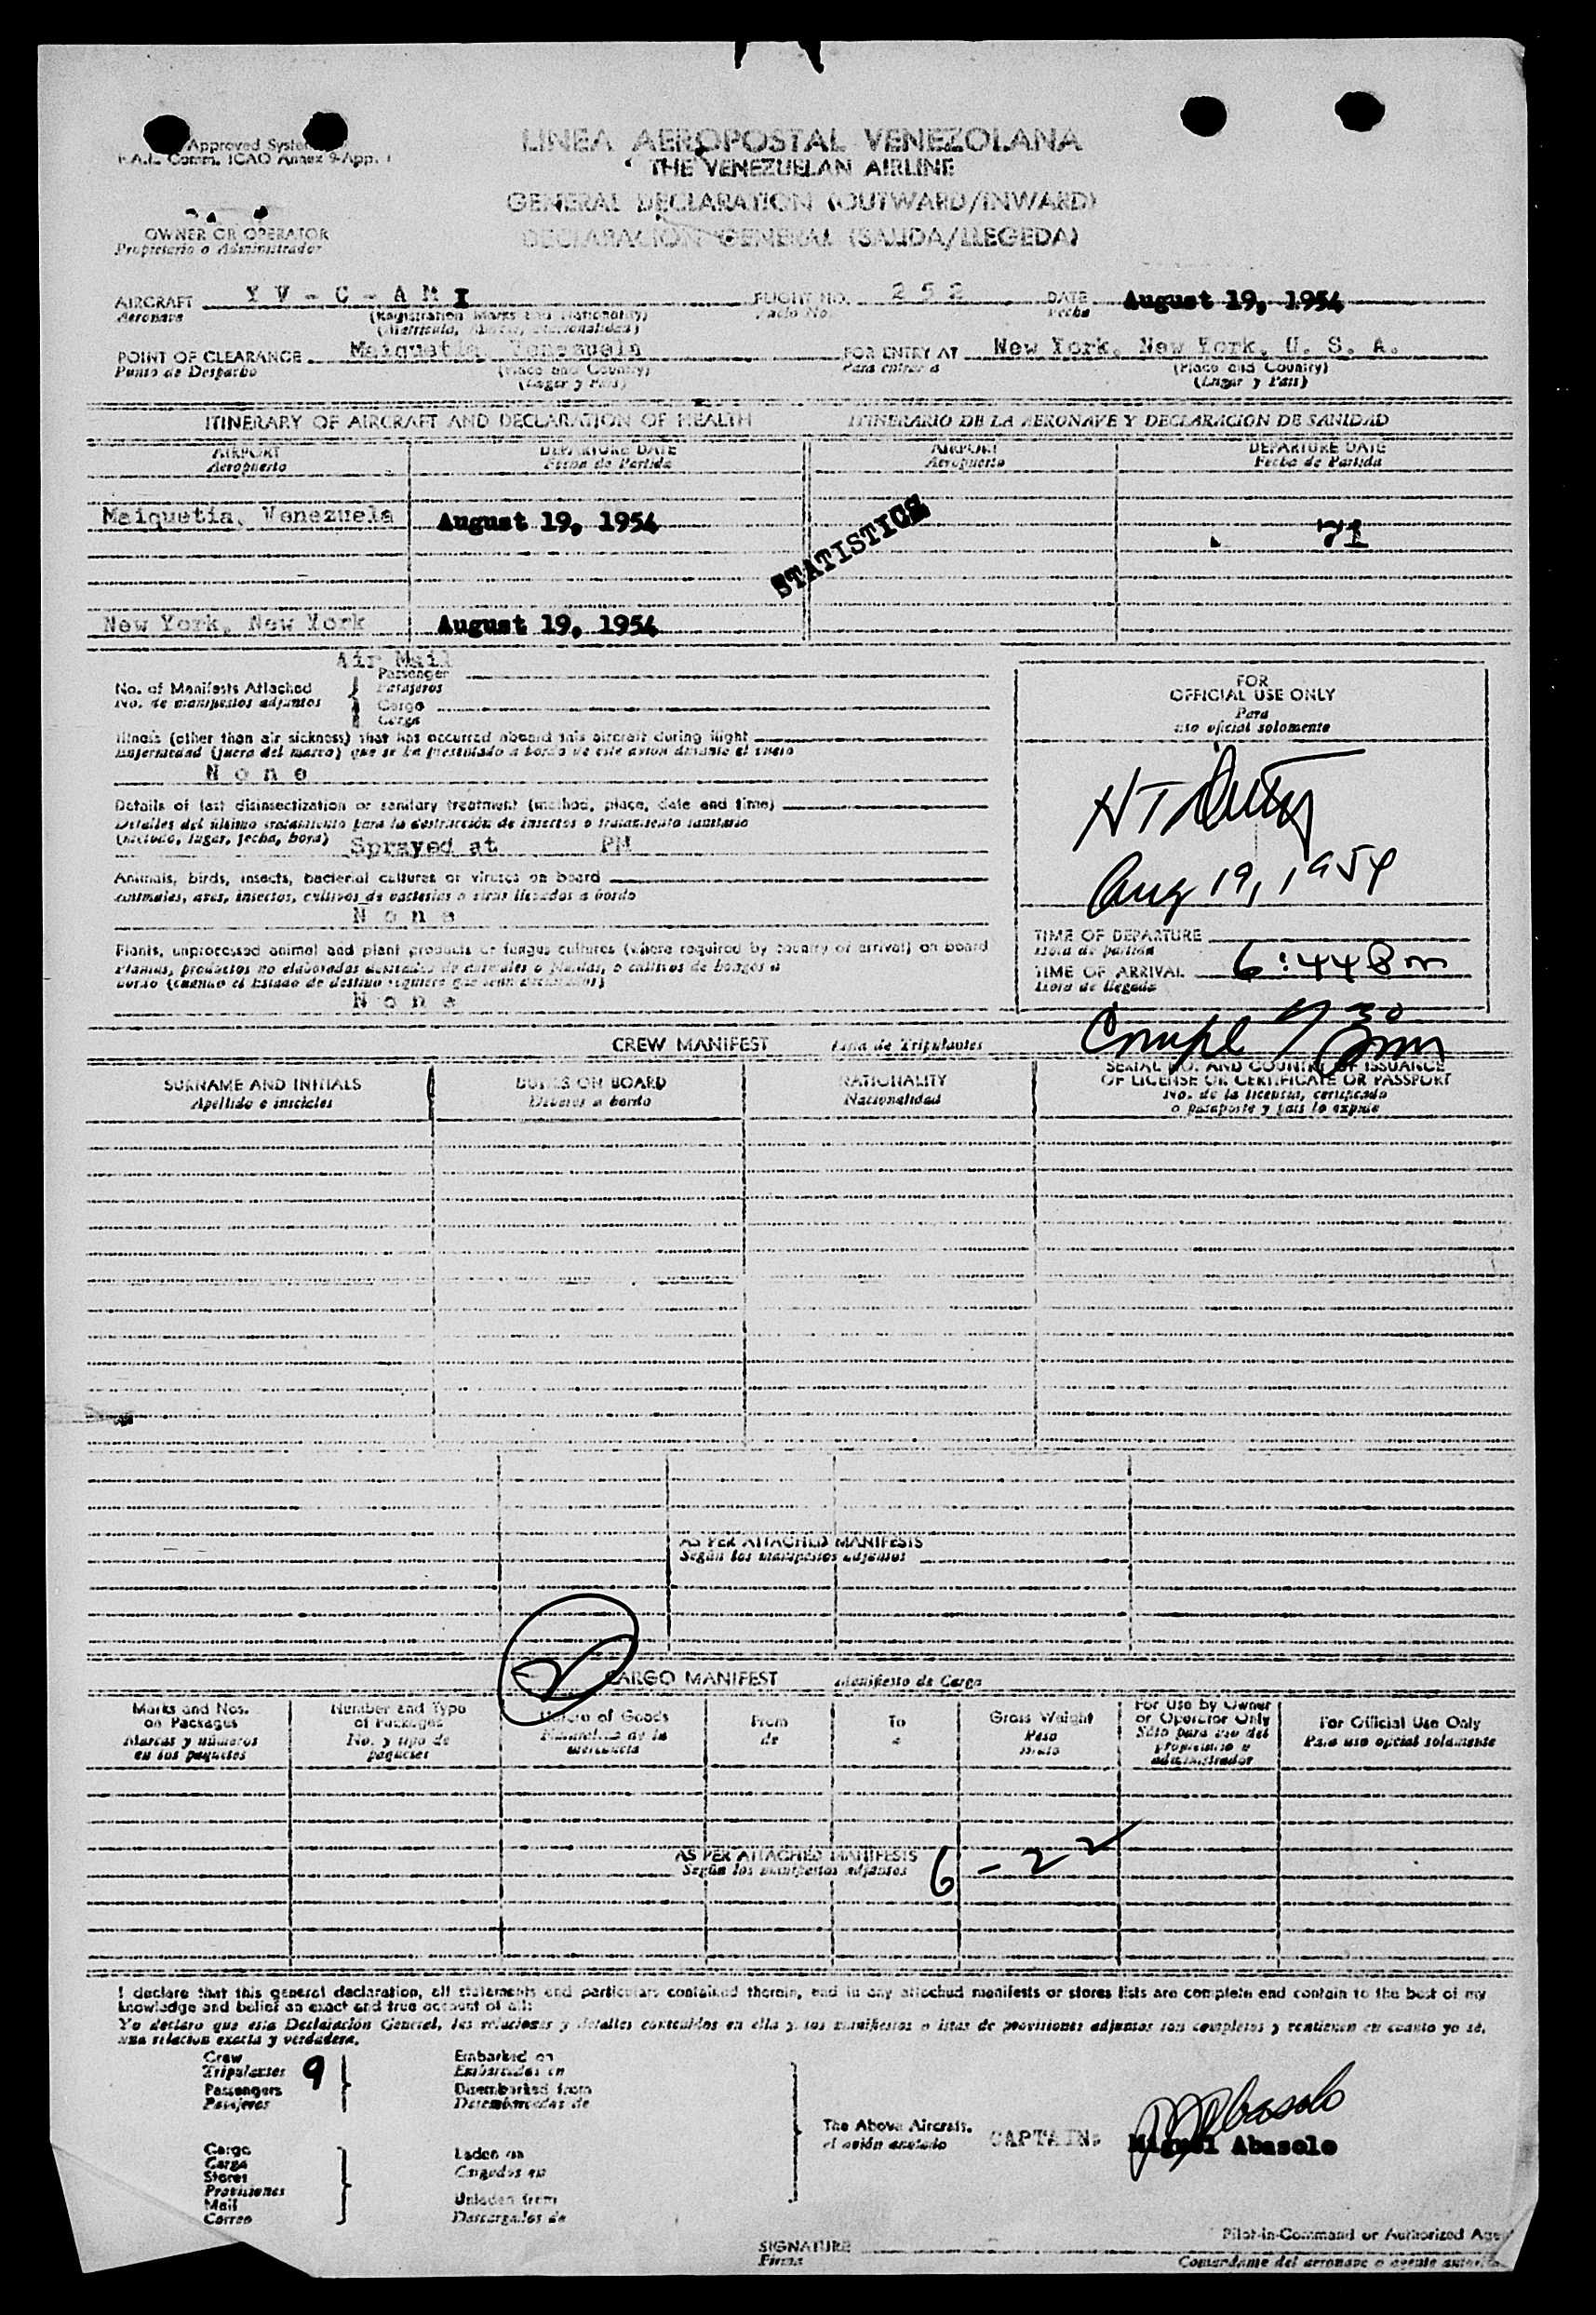 Approved System
F.A.L. Comm. ICAO Annex 9-App. 1
LINEA AEROPOSTAL VENEZOLANA
THE VENEZUELAN AIRLINE
GENERAL DECLARATION (OUTWARD/INWARD)
DECLARACION GENERAL (SALIDA/LLEGEDA)
OWNER OR OPERATOR
Propietario o Administrador
AIRCRAFT Y V - C - A M I FLIGHT NO. 2 5 2 DATE August 19, 1954
Aeronave (Registration Marks and Nationality) Vuelo No. Fecha
POINT OF CLEARANCE Maiquetia, Venezuela FOR ENTRY AT New York, New York, U. S. A.
Punto de Despacho (Place and Country) Para entrar a (Place and Country)
(Lugar y Pais) (Lugar y Pais)
ITINERARY OF AIRCRAFT AND DECLARATION OF HEALTH ITINERARIO DE LA AERONAVE Y DECLARACION DE SANIDAD
AIRPORT DEPARTURE DATE AIRPORT DEPARTURE DATE
Aeropuerto Fecha de Partida Aeropuerto Fecha de Partida
Maiquetia, Venezuela August 19, 1954
STATISTICS
New York, New York August 19, 1954
Air Mail
No. of Manifests Attached Passenger
No. de manifiestos adjuntos Pasajeros
Cargo
Carga
FOR
OFFICIAL USE ONLY
Para
uso oficial solomente
Illness (other than air sickness) that has occurred aboard this aircraft during flight
Enfermedad (fuera del mareo) que se ha presentado a bordo de este avion durante el vuelo
N o n e
Details of last disinsectization or sanitary treatment (method, place, date and time)
Detalles del último tratamiento para la destrucción de insectos o tratamiento sanitario
(método, lugar, fecha, hora) Sprayed at PM
Aug 19, 1954
Animals, birds, insects, bacterial cultures or viruses on board
Animales, aves, insectos, cultivos de bacterias o virus llevados a bordo
N o n e
Plants, unprocessed animal and plant products or fungus cultures (where required by country of arrival) on board
N o n e
TIME OF DEPARTURE
Hora de partida
TIME OF ARRIVAL 6:44 Pm
Hora de llegada
CREW MANIFEST Lista de Tripulantes
SURNAME AND INITIALS DUTIES ON BOARD NATIONALITY SERIAL NO. AND COUNTRY OF ISSUANCE
OF LICENSE OR CERTIFICATE OR PASSPORT
Apellido e iniciales Deberes a bordo Nacionalidad No. de la licencia, certificado
o pasaporte y pais lo expide
AS PER ATTACHED MANIFESTS
Según los manifiestos adjuntos
CARGO MANIFEST Manifiesto de Carga
Marks and Nos. on Packages Number and Type of Packages Nature of Goods From To Gross Weight For Use by Owner or Operator Only For Official Use Only
Marcas y números en los paquetes No. y tipo de paquetes Naturaleza de la mercancia de a Peso Bruto Sólo para uso del propietario o administrador Para uso oficial solamente
AS PER ATTACHED MANIFESTS 6 - 22
Según los manifiestos adjuntos
I declare that this general declaration, all statements and particulars contained therein, and in any attached manifests or stores lists are complete and contain to the best of my
knowledge and belief an exact and true account of all:
Yo declaro que esta Declaración General, las relaciones y detalles contenidos en ella y los manifiestos o listas de provisiones adjuntos son completos y contienen en cuanto yo sé,
una relacion exacta y verdadera.
Crew
Tripulantes 9
Passengers
Pasajeros
Embarked on
Embarcados en
Disembarked from
Desembarcadas de
The Above Aircraft.
el avión anotado
CAPTAIN: Miguel Abasolo
Cargo
Carga
Stores
Provisiones
Mail
Correo
Laden on
Cargados en
Unladen from
Descargados de
SIGNATURE
Firma
Pilot-in-Command or Authorized Age
Comandante del aeronave o agente